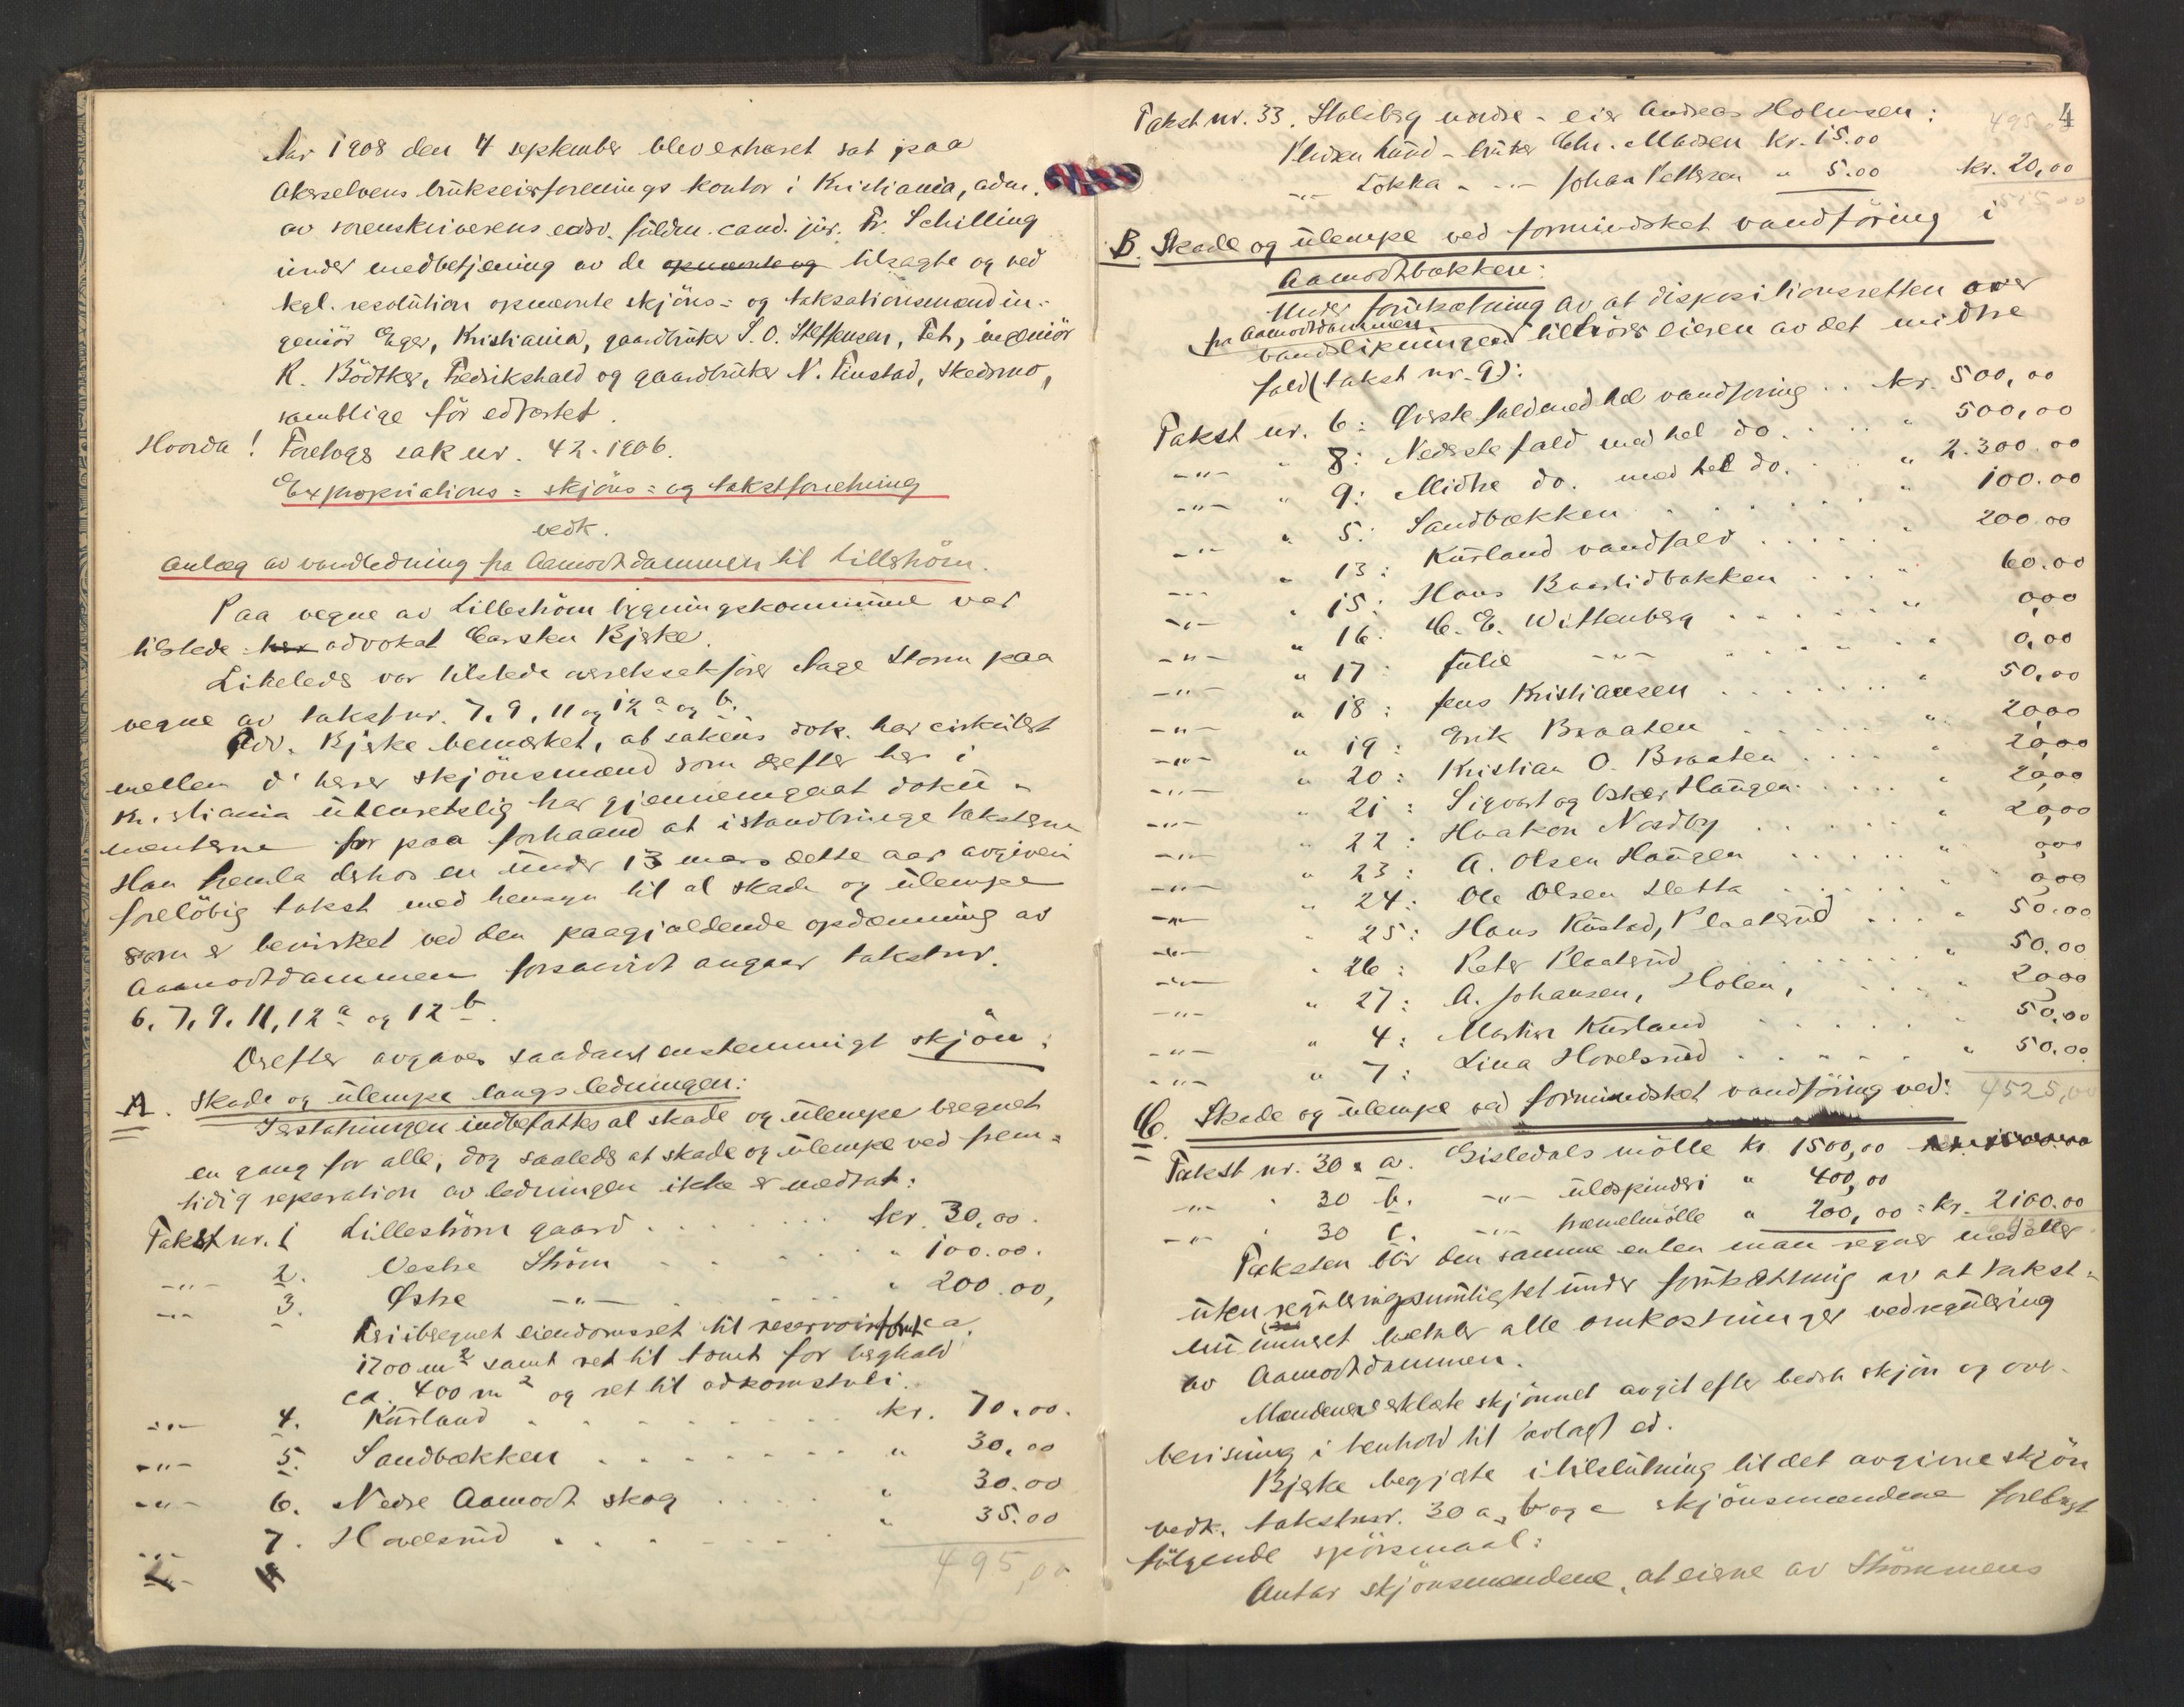 Aar 1908 den 4 september blev extraret sat paa
Akerselvens brukseierforenings kontor i Kristiania, adm.
av sorenskriverens edsv. fuldm. cand. jur. Fr. Schilling
under medbetjening av de opnævnte og tilsagte og ved
kgl. resolution opnævnte skjöns- og taksationsmænd in-
geniör Eger, Kristiania, gaardbruker S. O. Steffensen, Fet, ingeniör
R. Bödtker, Fredrikshald og gaardbruker N. Tinstad, Skedsmo,
samtlige för edfæstet.
Hvorda! Foretoges sak nr. 42-1906.
Expropriations- skjöns- og takstforretning
vedk.
anlæg av vandledning fra Aamodtdammen til Lillström.
Paa vegne av Lilleström bygningskommune var
tilstede her advokat Carsten Bjerke.
Likeledes var tilstede overretssakförer Aage Storm paa
vegne av takstnr. 7, 9, 11 og 12 a og b.
Adv. Bjerke bemerket, at sakens dok. har cirkulert
mellem d'herrer skjönsmænd som derefter her i
Kristiania utenretslig har gjennemgaat doku-
menterne for paa forhaand at istandbringe taksterne
Han fremla derhos en under 13 mars dette aar avgiven
forelöbig takst med hensyn til al skade og ulempe
som er bevirket ved den paagjældende opdæmning av
Aamodtdammen forsaavidt angaar takstnr.
6, 7, 9, 11, 12 a og 12 b.
Derefter avgaves saadant enstemmigt skjön:
A. Skade og ulempe langs ledningen:
I erstatningen indbefattes al skade og ulempe beregnet
en gang for alle, dog saaledes at skade og ulempe ved frem-
tidig reparation av ledningen ikke er medtat:
Takst nr. 1 Lilleström gaard . . . . kr. 30,00.
-"- 2. Vestre Ström . . . . " 100.00.
-"- 3. Østre -"- . . . . " 200.00,
Heri iberegnet eiendomsret til reservoirtomt ca.
1700 m² samt ret til tomt for beghald
ca. 400 m² og ret til adkomstvei.
-"- 4. Kurland . . . . kr. 70.00.
-"- 5. Sandbækken . . . . " 30,00
-"- 6. Nedre Aamodt skog . . . . " 30.00
-"- 7. Hovelsrud . . . . " 35.00
495,00
4
Takst nr. 33. Stalsberg nordre - eier Andreas Holmsen:
495,00
Pladsen Lund - bruker Chr. Madsen kr. 15.00
-"- Lökka - -"- Johan Pettersen " 5.00 kr. 20,00
515,00
B. Skade og ulempe ved formindsket vandföring i
Aamodtbækken:
Under forutsætning av at dispositionsretten over
fra Aamodtdammen
vandslipningen tilhörer eieren av det midtre
fald (takst nr. 9):
Takst nr. 6: Øverste fald med hel vandföring . . kr. 500,00
-"- " 8: Nederste fald med hel do. . . . " 500,00
-"- " 9: Midtre do. med hel do. . . . " 2.300.00
-"- " 5: Sandbækken . . . . " 100.00
-"- " 13: Kurland vandfald . . . . " 200.00
-"- " 15: Hans Baastidbakken . . . . " 60.00
-"- " 16: C. E. Wittenberg . . . . " 0,00
-"- " 17: Julie -"- . . . . " 0,00
-"- " 18: Jens Kristiansen . . . . " 50,00
-"- " 19: Erik Braaten . . . . " 20,00
-"- " 20: Kristian O. Braaten . . . . " 20,00
-"- " 21: Sigvart og Osker Haugen . . . . " 20,00
-"- " 22: Haakon Nordby . . . . " 20,00
-"- " 23: A. Olsen Haugen . . . . " 0,00
-"- " 24: Ole Olsen Sletta . . . . " 0,00
-"- " 25: Hans Rustad, Plaaterud . . . . " 50.00
-"- " 26: Peter Plaaterud . . . . " 50.00
-"- " 27: A. Johansen, Holen, . . . . " 20,00
-"- " 4: Martin Kurland . . . . " 50,00
-"- " 7: Lina Hovelsrud . . . . " 50.00
4525,00
C. Skade og ulempe ved formindsket vandföring ved:
Takst nr. 30 a. Gisledals mölle kr. 1500,00
-"- " 30 b. -"- uldspinderi " 400,00
-"- " 30 c. -"- hramelmölle " 200,00 = kr. 2100.00
Taksten blir den samme enten man regner med eller
uten reguleringsmulighet under forutsætning av at takst-
nummeret betaler alle omkostninger ved regulering
av Aamodtdammen.
Mændene erklærte skjönnet avgit efter bedste skjön og over-
bevisning i henhold til avlagt ed.
Bjerke begjærte i tilslutning til det avgivne skjön
vedk. takstnr. 30 a, b og c skjönsmændene forelagt
fölgende spörsmaal:
Antar skjönsmændene, at eierne av Strömmens